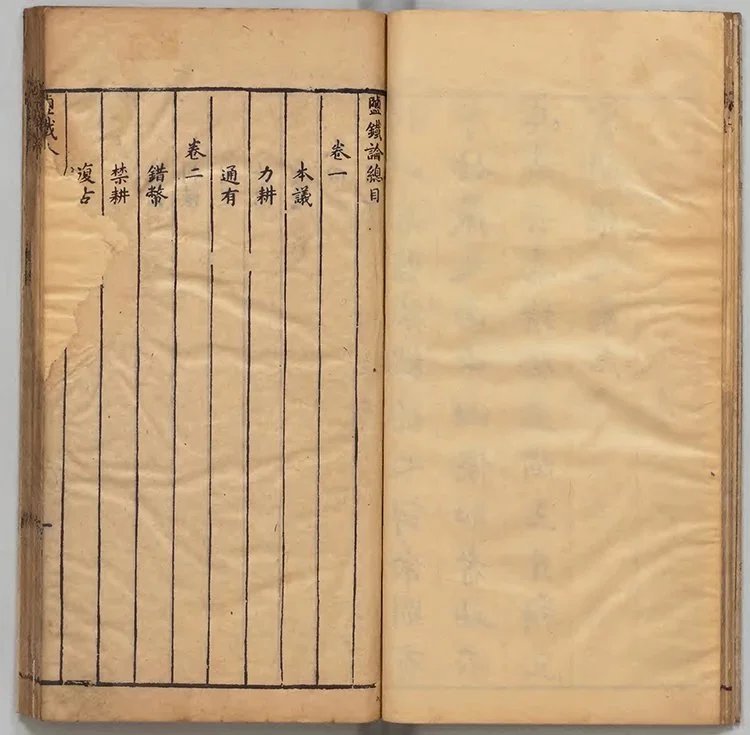 鹽鐵論總目
卷一
本議
力耕
通有
卷二
錯幣
禁耕
復古